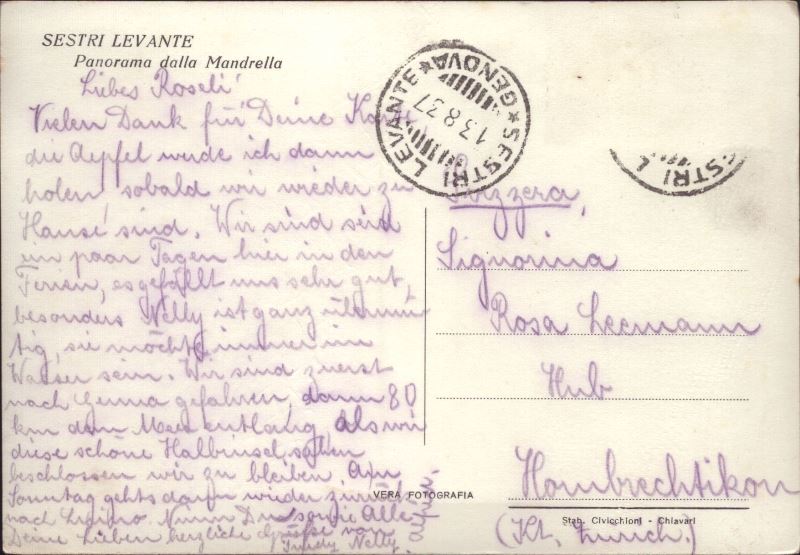 SESTRI LEVANTE
Panorama dalla Mandrella
Liebes Roseli!
Vielen Dank für Deine Karte
die Aepfel werde ich dann
holen sobald wir wieder zu
Hause sind. Wir sind seit
ein paar Tagen hier in den
Ferien, es gefällt uns sehr gut,
besonders Nelly ist ganz übermü
tig, sie möchte immer im
Wasser sein. Wir sind zuerst
nach Genua gefahren, dann 80
km dem Meer entlang als wir
diese schöne Halbinsel sahen
beschlossen wir zu bleiben. Am
Sonntag gehts dann wieder zurück
nach Nimm Du sowie Alle
Deine Lieben herzliche Grüsse von
Trudy Nelly.
SESTRI LEVANTE ★ GENOVA ★
13.8.37
ESTRI L
Svizzera,
Signorina
Rosa Leemann
Hub
Hombrechtikon
(Kt. Zürich.)
VERA FOTOGRAFIA
Stab. Civicchioni - Chiavari